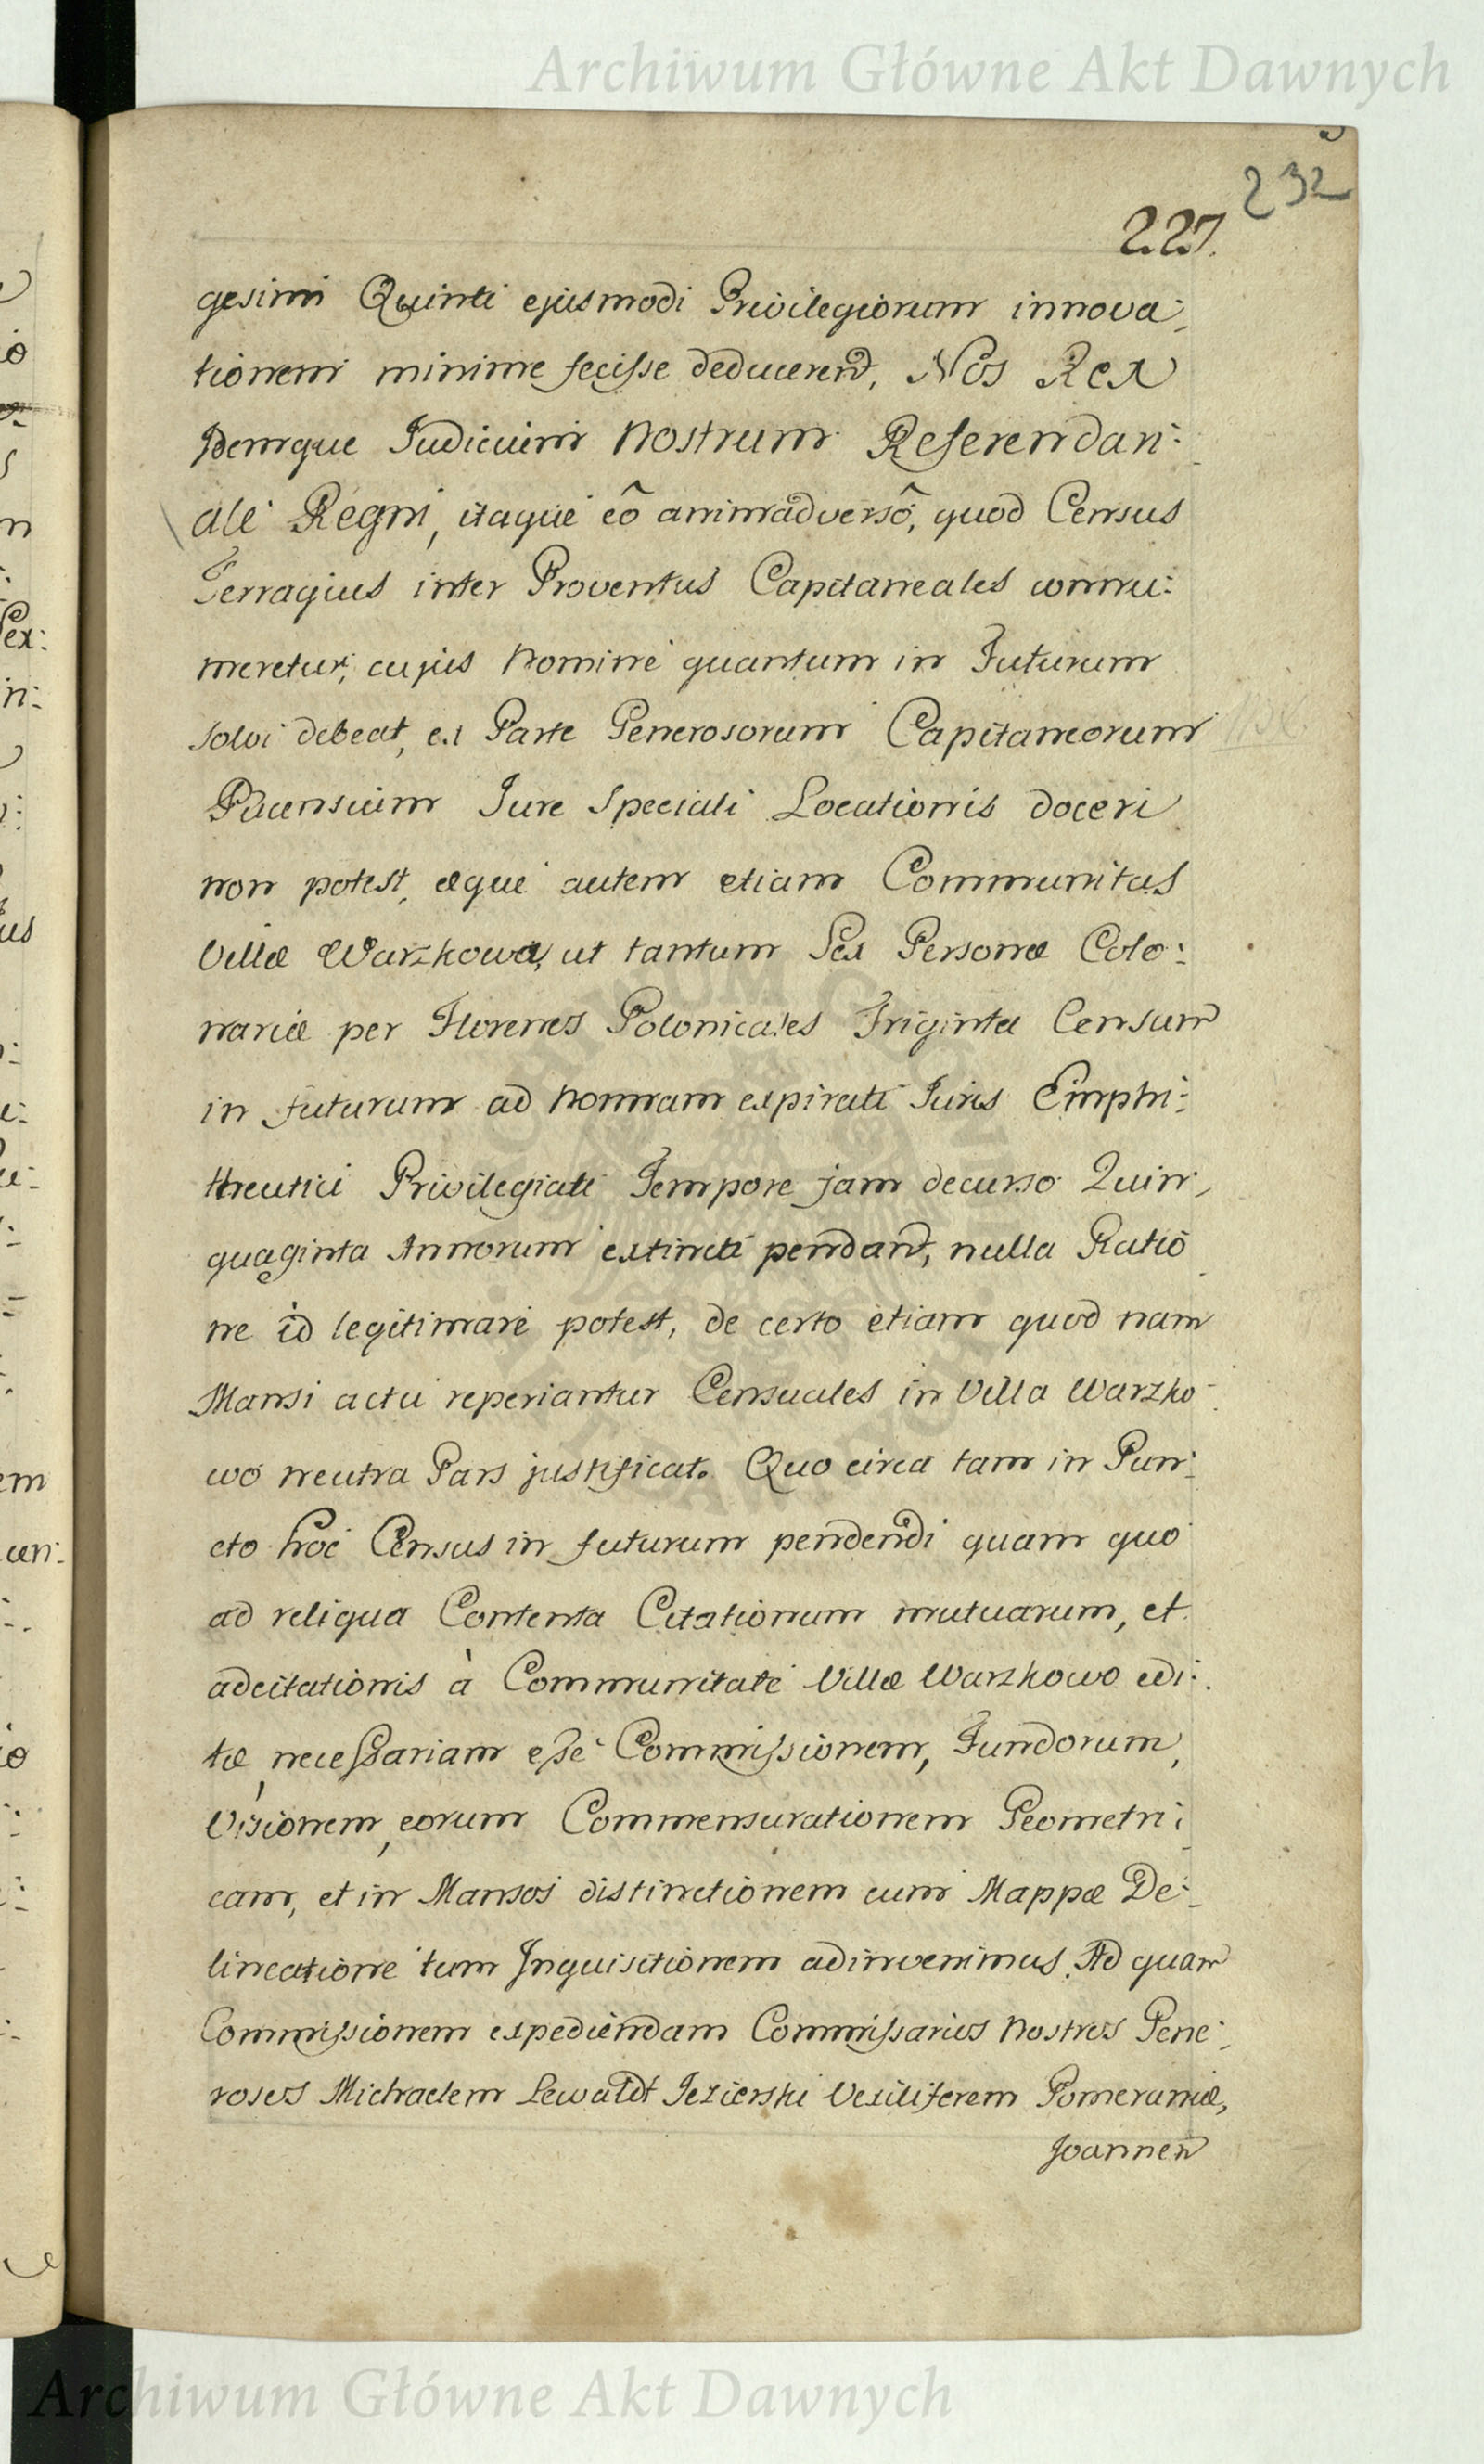 Archiwum Główne Akt Dawnych
232
227.
gesimi Quinti ejusmodi Privilegiorum innova:
tionem minime fecisse deducerent, Nos Rex
Idemque Judicium Nostrum Referendari:
ale Regni, itaque eô animadversô, quod Census
Terragius inter Proventus Capitaneales connu:
meretur, cujus Nomine quantum in Futurum
solvi debeat, ex Parte Generosorum Capitaneorum
Pucensium Jure Speciali Locationis doceri
non potest, æque autem etiam Communitas
Villæ Warzkowo, ut tantum Sex Personæ Colo:
nariæ per Florenos Polonicales Triginta Censum
in futurum ad Normam expirati Juris Emphi:
theutici Privilegiati Tempore jam decurso Quin,
quaginta Annorum extincti pendant, nulla Ratio
ne id legitimare potest, de certo etiam quod nam
Mansi actu reperiantur Censuales in Villa Warzko
wo neutra Pars justificat. Quo circa tam in Pun:
cto hoc Census in futurum pendendi quam quo
ad reliqua Contenta Citationum mutuarum, et
adcitationis à Communitate Villæ Warzkowo edi:
tæ, necessariam esse Commissionem, Fundorum,
Visionem, eorum Commensurationem Geometri:
cam, et in Mansos distinctionem cum Mappæ De:
lineatione tum Inquisitionem adinvenimus. Ad quam
Commissionem expediendam Commissarios Nostros Gene:
rosos Michaelem Lewaldt Jezierski Vexiliferem Pomeraniæ,
Joannem
Archiwum Główne Akt Dawnych